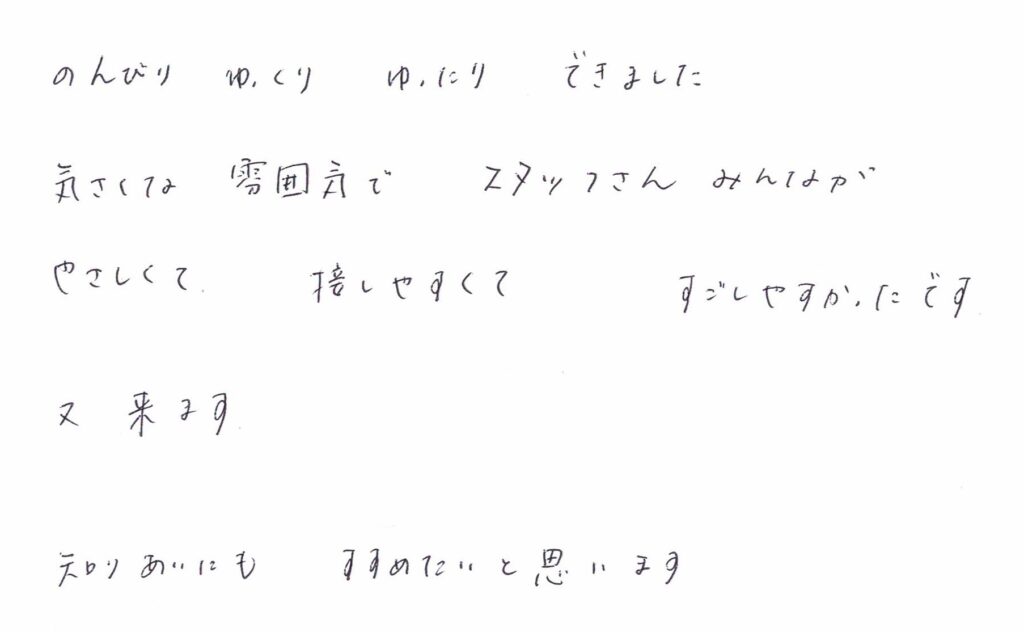 のんびり ゆっくり ゆったり できました
気さくな 雰囲気で スタッフさん みんなが
やさしくて 接しやすくて すごしやすかったです
又 来ます
知りあいにも すすめたいと思います